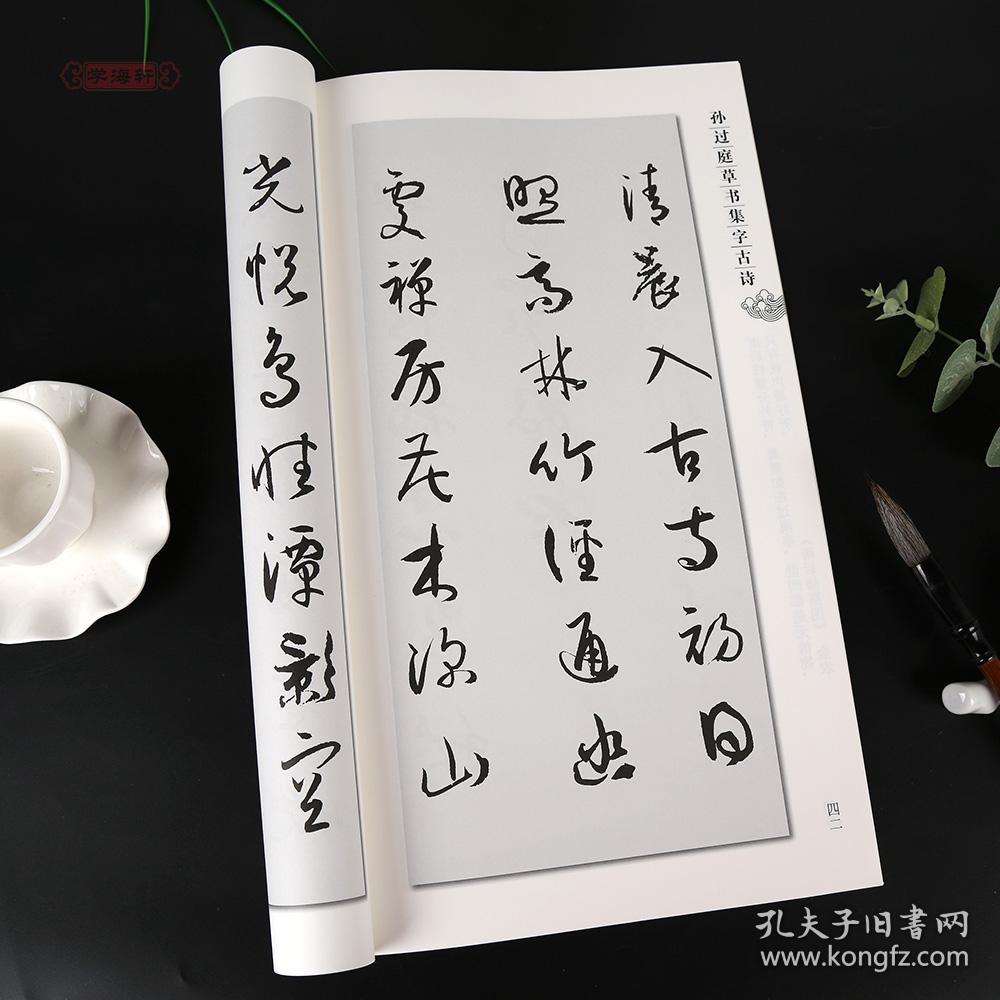 学海轩
孙过庭草书集字古诗
清晨入古寺初日
照高林竹徑通幽
處禪房花木深山
光悅鳥性潭影空
四二
孔夫子旧書网
www.kongfz.com